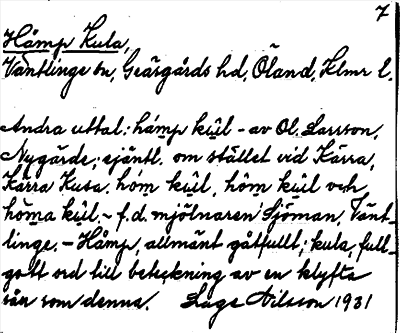 7
Håmp Kula,
Ventlinge sn, Geärgårds hd, Öland, Klmr l.
Andra uttal: hámp kûl - av Ol. Larsson,
Nygärde; sjäntl. om stället vid Kärra,
Kärra Kusa. hóm kûl, hôm kûl och
hôma kûl; - f.d. mjölnaren Sjöman, Vänt-
linge. - Håmp, allmänt gåtfullt; kula, full-
gott ord till beteckning av en klyfta
sån som denna. Lage Nilsson 1931